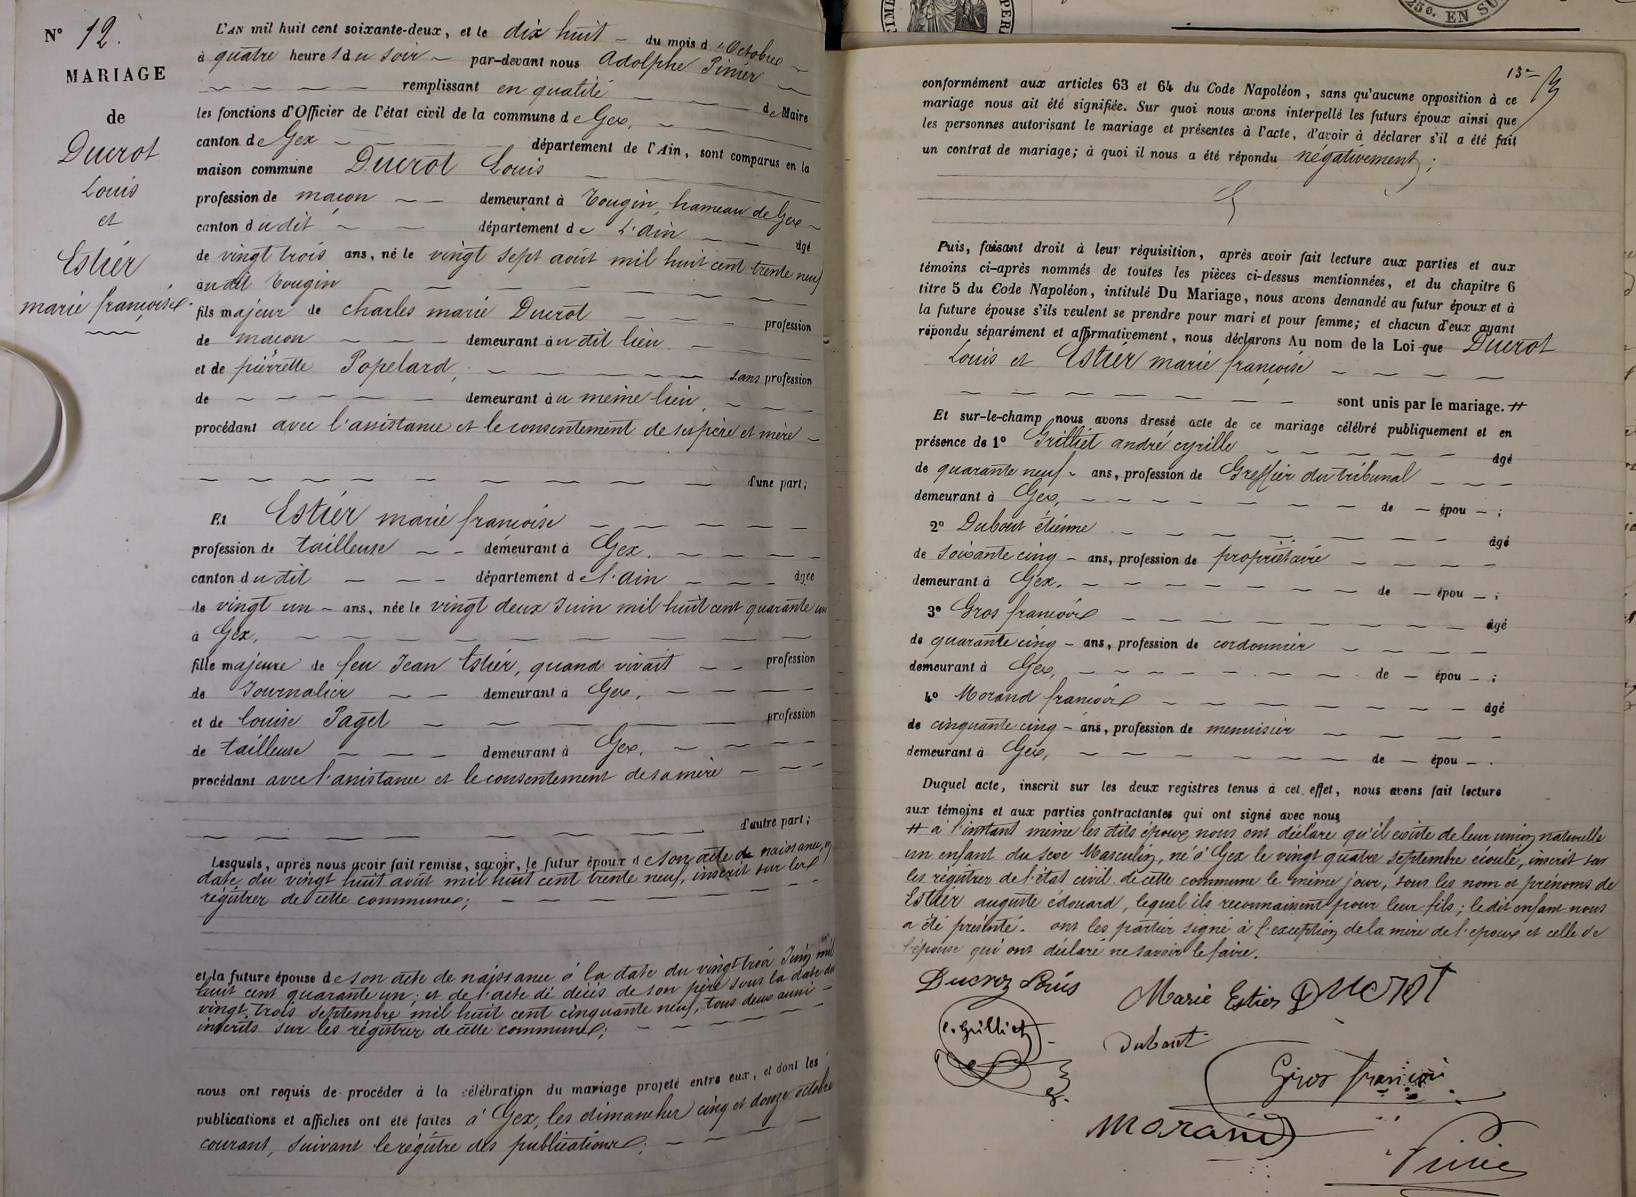 N° 12.
MARIAGE
de
Ducrot
Louis
et
Estiér
marie françoise
L'AN mil huit cent soixante-deux, et le dix huit du mois d'Octobre
à quatre heures du soir par-devant nous Adolphe Pinier
remplissant en qualité de Maire
les fonctions d'Officier de l'état civil de la commune de Gex,
canton de Gex département de l'Ain, sont comparus en la
maison commune Ducrot Louis
profession de maçon demeurant à Tougin, hameau de Gex
canton dudit département de L'ain âgé
de vingt trois ans, né le vingt sept août mil huit cent trente neuf
audit Tougin
fils majeur de charles marié Ducrot profession
de maçon demeurant audit lieu
et de pierrette Popelard, sans profession
de demeurant au même lieu,
procédant avec l'assistance et le consentement de ses père et mère
d'une part;
Et Estiér marie françoise
profession de tailleuse demeurant à Gex.
canton dudit département de l'ain âgée
de vingt un ans, née le vingt deux Juin mil huit cent quarante un
à Gex,
fille majeure de feu Jean Estiér, quand vivait profession
de Journalier demeurant à Gex,
et de Louise Paget profession
de tailleuse demeurant à Gex.
procédant avec l'assistance et le consentement de sa mère
d'autre part;
Lesquels, après nous avoir fait remise, savoir, le futur époux de son acte de naissance, en
date du vingt huit août mil huit cent trente neuf, inscrit sur les
régistres de cette commune;
et la future épouse de son acte de naissance à la date du vingt trois Juin mil
huit cent quarante un; et de l'acte de décès de son père sous la date du
vingt trois septembre mil huit cent cinquante neuf, tous deux aussi
inscrits sur les régistres de cette commune;
nous ont requis de procéder à la célébration du mariage projeté entre eux, et dont les
publications et affiches ont été faites à Gex, les dimanches cinq et douze octobre
courant, suivant le régistre des publications;
13
conformément aux articles 63 et 64 du Code Napoléon, sans qu'aucune opposition à ce
mariage nous ait été signifiée. Sur quoi nous avons interpellé les futurs époux ainsi que
les personnes autorisant le mariage et présentes à l'acte, d'avoir à déclarer s'il a été fait
un contrat de mariage; à quoi il nous a été répondu négativement;
Puis, faisant droit à leur réquisition, après avoir fait lecture aux parties et aux
témoins ci-après nommés de toutes les pièces ci-dessus mentionnées, et du chapitre 6
titre 5 du Code Napoléon, intitulé Du Mariage, nous avons demandé au futur époux et à
la future épouse s'ils veulent se prendre pour mari et pour femme; et chacun d'eux ayant
répondu séparément et affirmativement, nous déclarons Au nom de la Loi que Ducrot
Louis et Estiér marie françoise
sont unis par le mariage. #
Et sur-le-champ nous avons dressé acte de ce mariage célébré publiquement et en
présence de 1° Grilliet andré cyrille âgé
de quarante neuf ans, profession de Greffier du tribunal
demeurant à Gex, de épou ;
2° Dubout étienne âgé
de soixante cinq ans, profession de propriétaire
demeurant à Gex, de épou ;
3° Gros françois âgé
de quarante cinq ans, profession de cordonnier
demeurant à Gex, de épou ;
4° Morand françois âgé
de cinquante cinq ans, profession de menuisier
demeurant à Gex, de épou .
Duquel acte, inscrit sur les deux registres tenus à cet effet, nous avons fait lecture
aux témoins et aux parties contractantes qui ont signé avec nous
# à l'instant même les dits époux nous ont déclaré qu'il existe de leur union naturelle
un enfant du sexe Masculin, né à Gex le vingt quatre septembre écoulé, inscrit sur
les régistres de l'état civil de cette commune le même jour, sous les nom et prénoms de
Estiér auguste édouard, lequel ils reconnaissent pour leur fils; le dit enfant nous
a été présenté. ont les parties signé à l'exception de la mère de l'epoux et celle de
l'épouse qui ont déclaré ne savoir le faire.
Ducroz Louis Marie Estier Ducrot
c. Grilliet Dubout
Gros françois
Morand
Pinier